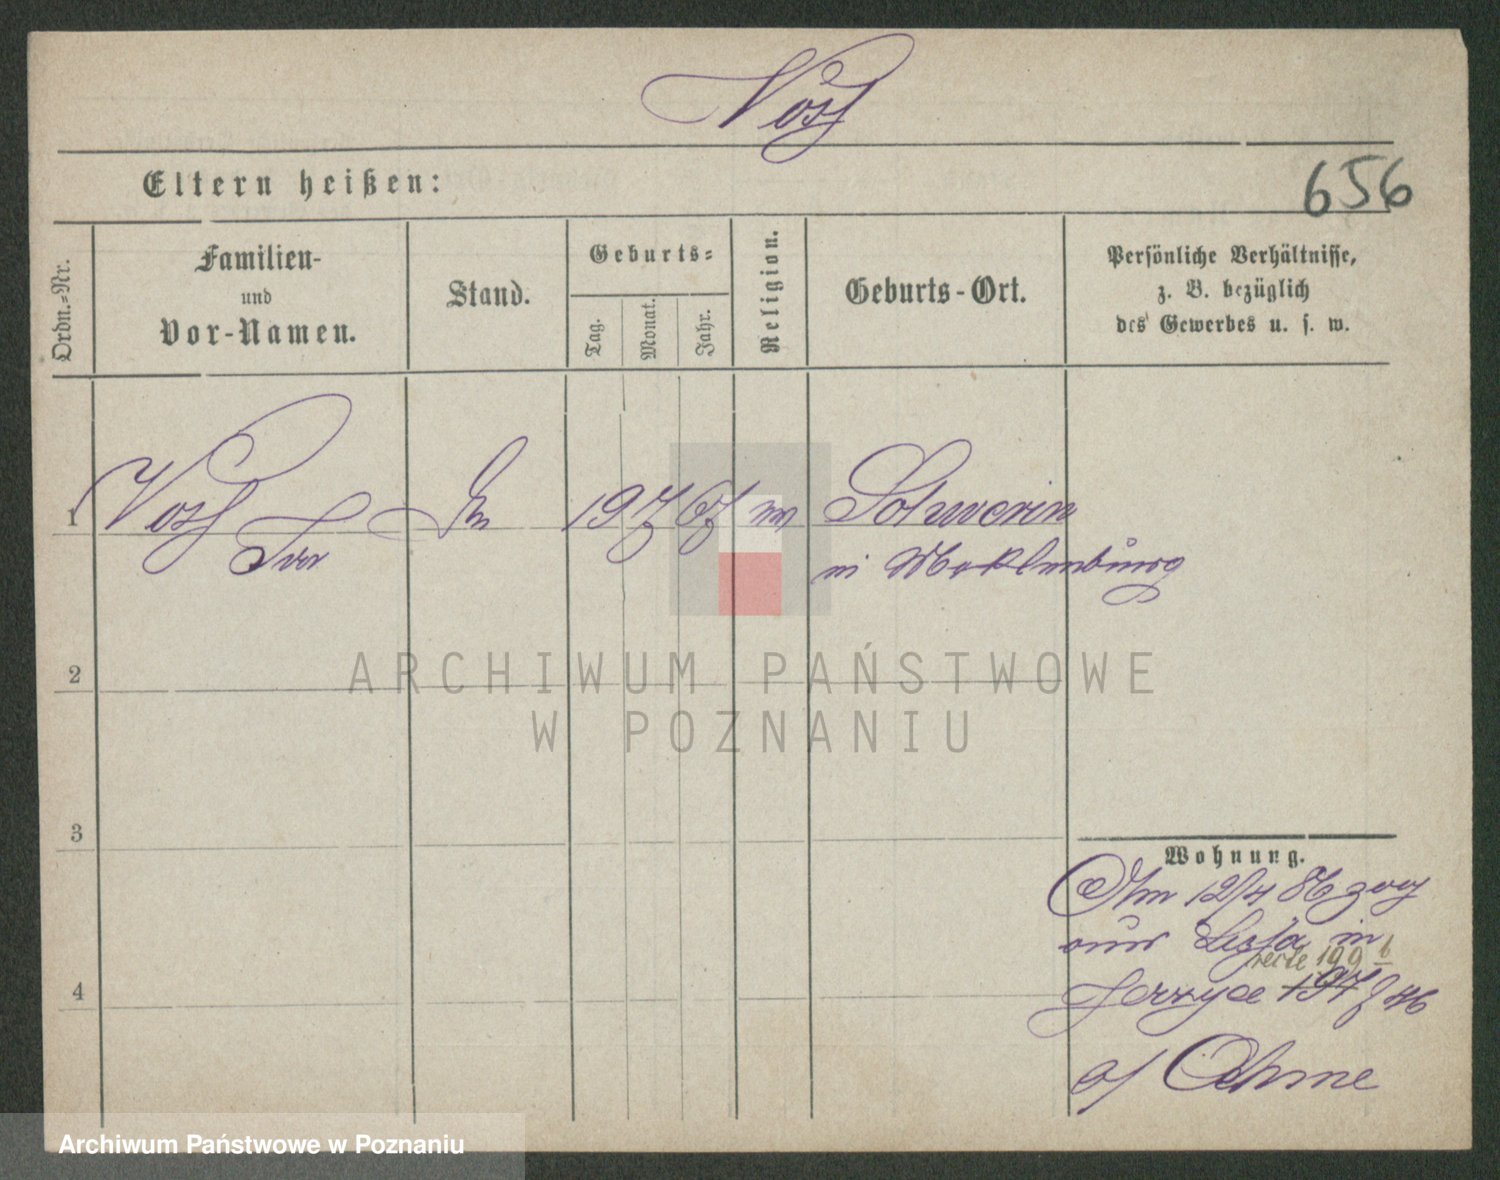 Voß
656
Eltern heißen:
Ordn.-Nr.
Familien-
und
Vor-Namen.
Stand.
Geburts-
Tag.
Monat.
Jahr.
Religion.
Geburts-Ort.
Persönliche Verhältnisse,
z. B. bezüglich
des Gewerbes u. s. w.
1 Voß 19 7 67 Schwerin
in Mecklenburg
2
3
4
Wohnung.
Am 12/4 86 zog
aus in
recte 199 b
Jerzyce 197
Oehme
ARCHIWUM PAŃSTWOWE
W POZNANIU
Archiwum Państwowe w Poznaniu